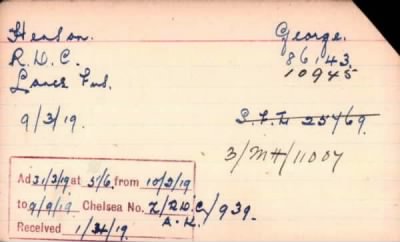 Henson. George.
R.D.C. 86143.
Lancs Fus. 10945
9/3/19. S.F.F. 254/69.
3/MH/11007
Ad 31/3/19 at 5/6 from 10/3/19
to 9/9/19 Chelsea No. Z/R.D.C./939.
Received 1/34/19. A.K.